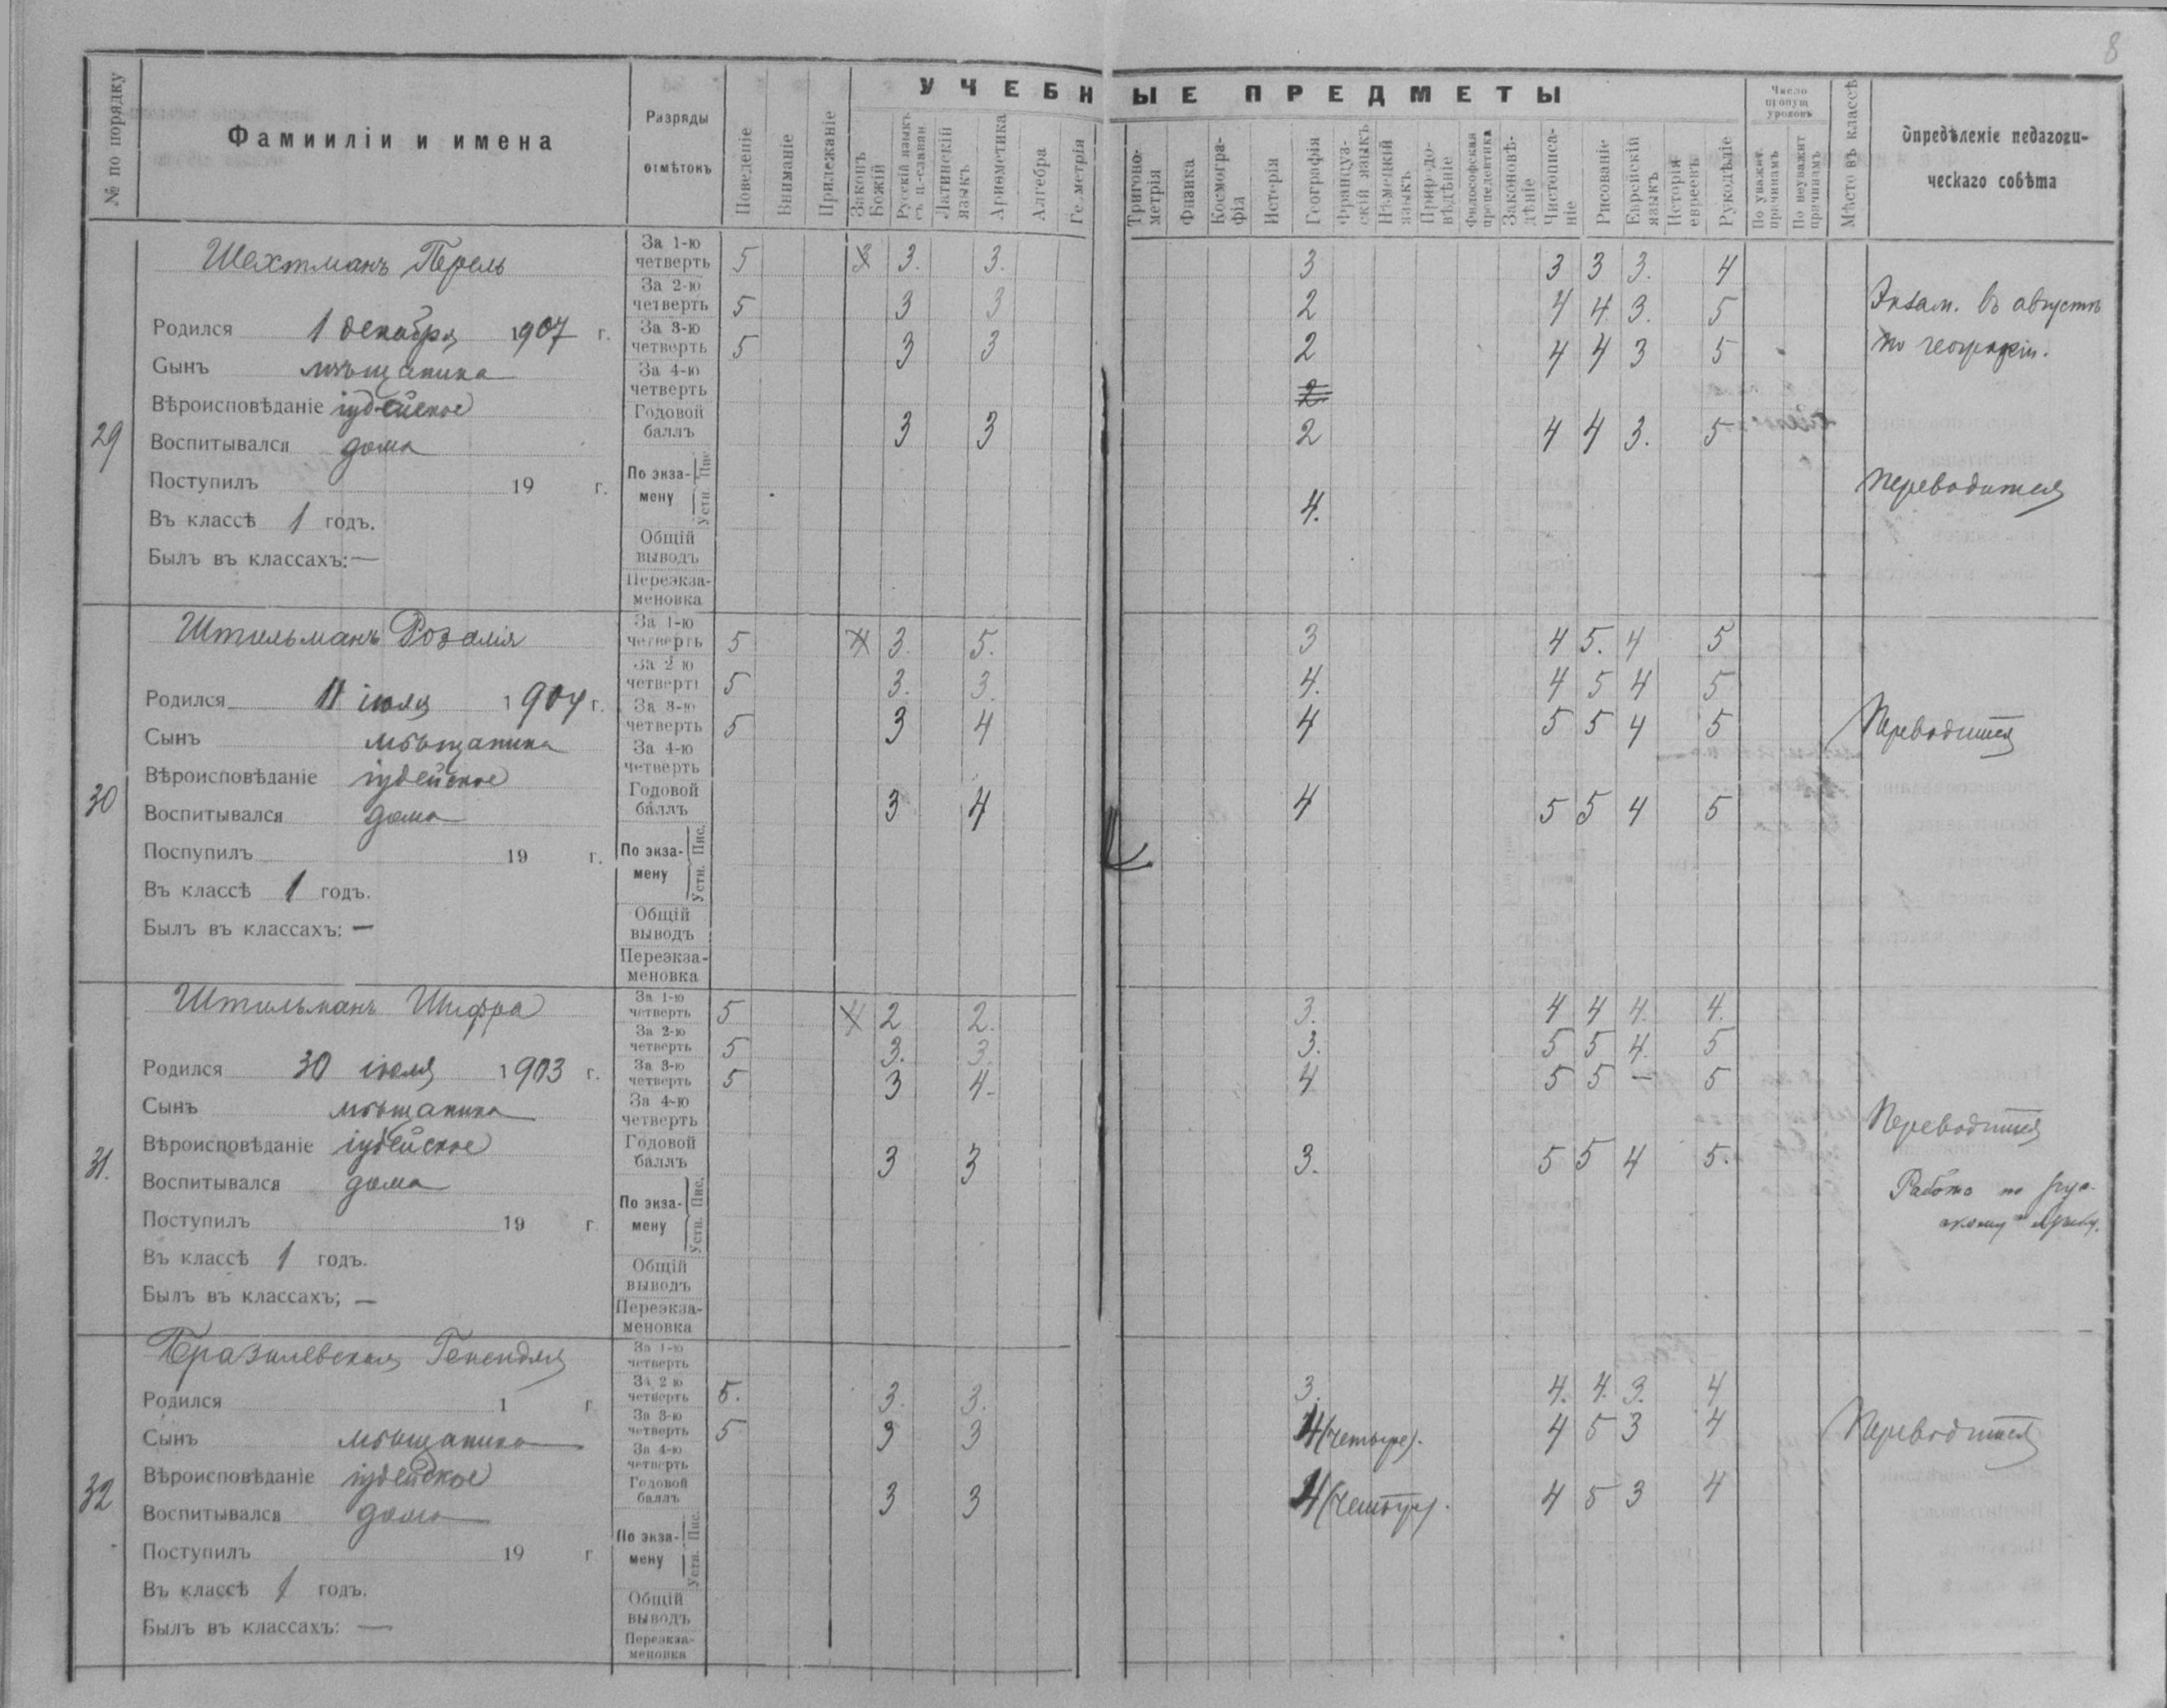 8
УЧЕБНЫЕ ПРЕДМЕТЫ
№ по порядку
Фамииліи и имена
Разряды отмѣтокъ
Поведеніе
Вниманіе
Прилежаніе
Законъ Божій
Русскій языкъ съ ц.-славян
Латинскій языкъ
Ариѳметика
Алгебра
Геометрія
Тригоно-метрія
Физика
Космогра-фія
Исторія
Географія
Француз-скій языкъ
Нѣмецкій языкъ
Природо-вѣдѣніе
Философская пропедевтика
Законовѣ-дѣніе
Чистописа-ніе
Рисованіе
Еврейскій языкъ
Исторія евреевъ
Рукодѣліе
Число пропущ уроковъ
По уважит. причинамъ
По неуважит причинамъ
Мѣсто въ классѣ
Опредѣленіе педагоги-
ческаго совѣта
29
Шехтманъ Перель
Родился 1 декабря 1907 г.
Сынъ мѣщанина
Вѣроисповѣданіе іудейское
Воспитывался дома
Поступилъ 19 г.
Въ классѣ 1 годъ.
Былъ въ классахъ: —
За 1-ю четверть 5 3 3. 3. 3 3 3 3. 4
За 2-ю четверть 5 3 3 2 4 4 3. 5
За 3-ю четверть 5 3 3 2 4 4 3 5
За 4-ю четверть 2
Годовой баллъ 3 3 2 4 4 3. 5
По экза-мену Пис Устн 4.
Общій выводъ
Переэкза-меновка
Экзам. въ августѣ
по географіи.
Переводится
30
Штильманъ Розалія
Родился 11 іюля 1904 г.
Сынъ мѣщанина
Вѣроисповѣданіе іудейское
Воспитывался дома
Поспупилъ 19 г.
Въ классѣ 1 годъ.
Былъ въ классахъ: —
За 1-ю четверть 5 4 3. 5. 3 4 5. 4 5
За 2 ю четверть 5 3. 3. 4. 4 5 4 5
За 3-ю четверть 5 3 4 4 5 5 4 5
За 4-ю четверть
Годовой баллъ 3 4 4 5 5 4 5
По экза-мену Пис. Устн.
Общій выводъ
Переэкза-меновка
Переводится
31.
Штильманъ Шифра
Родился 30 іюля 1903 г.
Сынъ мѣщанина
Вѣроисповѣданіе іудейское
Воспитывался дома
Поступилъ 19 г
Въ классѣ 1 годъ.
Былъ въ классахъ; —
За 1-ю четверть 5 4 2 2. 3. 4 4 4. 4.
За 2-ю четверть 5 3. 3. 3. 5 5 4. 5
За 3-ю четверть 5 3 4- 4 5 5 — 5
За 4-ю четверть
Годовой баллъ 3 3 3. 5 5 4 5.
По экза-мену Пис. Устн.
Общій выводъ
Переэкза-меновка
Переводится
Работа по рус-
скому языку.
32
Бразилевская Генендля
Родился 1 г
Сынъ мѣщанина
Вѣроисповѣданіе іудейское
Воспитывался дома
Поступилъ 19 г
Въ классѣ 1 годъ.
Былъ въ классахъ: —
За 1-ю четверть
За 2 ю четверть 5. 3. 3. 3. 4. 4. 3. 4
За 3-ю четверть 5 3 3 4 (четыре). 4 5 3 4
За 4-ю четверть
Годовой баллъ 3 3 4 (четыре). 4 5 3 4
По экза-мену Пис. Устн.
Общій выводъ
Переэкза-меновка
Переводится